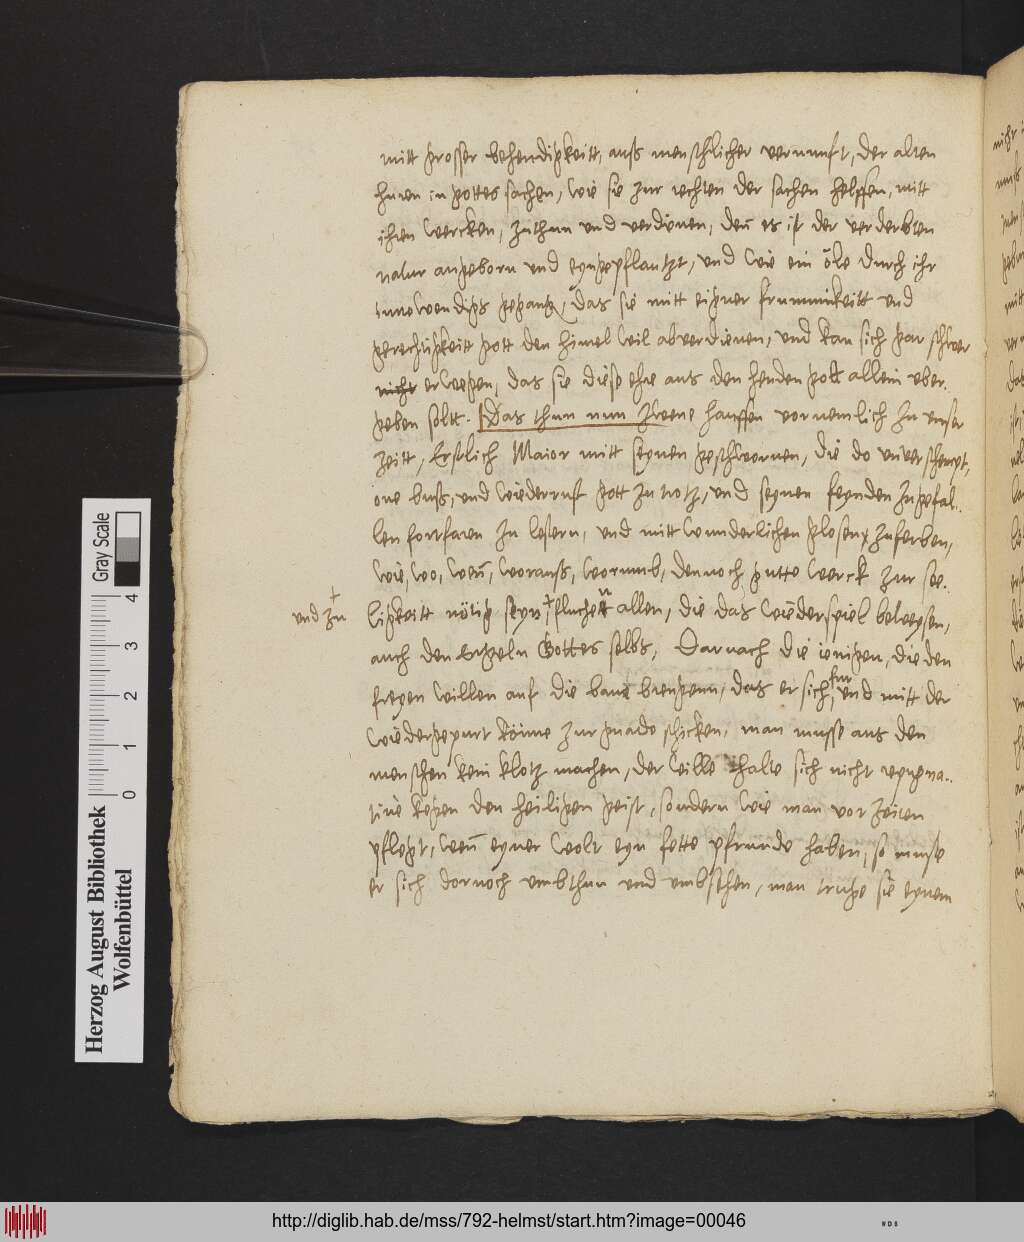 mitt grosser behendigkeitt, auß menschlicher vernunft, der alten
huren in gottes sachen, wie sie zur rechten der sachen helffen, mitt
ihren wercken, zuthun und verdinen, deñ es ist der verderbten
natur angeborn und eyngepflantzt, und wie ein öle durch ihr
das sie mitt eigner frummikeitt und
gerechtigkeitt gott den himel wil abverdienen, und kan sich gar schwer
nicht erwegen, das sie diese ehre aus den henden gott allein uber-
geben soltt. Das thun nun zweene hauffen vornemlich zu unser
zeitt, Erstlich Maior mitt seynen geschwornen, die do unverschempt,
one buß, und wiederruff gott zu trotz, und seynen feynden zugefal-
len fortfaren zu lestern, und mitt wunderlichen glosen zuferben,
wie, wo, weñ, worauß, worumb, dennoch gutte werck zur se-
und zu
ligkeitt nötig seyn, fluchen allen, die das wiederspiel beweysen,
auch den Engeln Gottes selbs, Darnach die ienigen, die den
freyen willen auf die bane brengenn, das er sich fur und mitt der
wiedergepurt könne zur gnade schicken, man musse aus den
menschen kein klotz machen, der wille halte sich nicht
kegen den heiligen geist, sondern wie man vor zeiten
pflegt, weñ eyner wolt eyn fette pfrunde haben, so muste
er sich dornoch umbthun und umbsehen, man truge sie eynem
Herzog August Bibliothek
Wolfenbüttel
0 1 2 3 4
Gray Scale
http://diglib.hab.de/mss/792-helmst/start.htm?image=00046